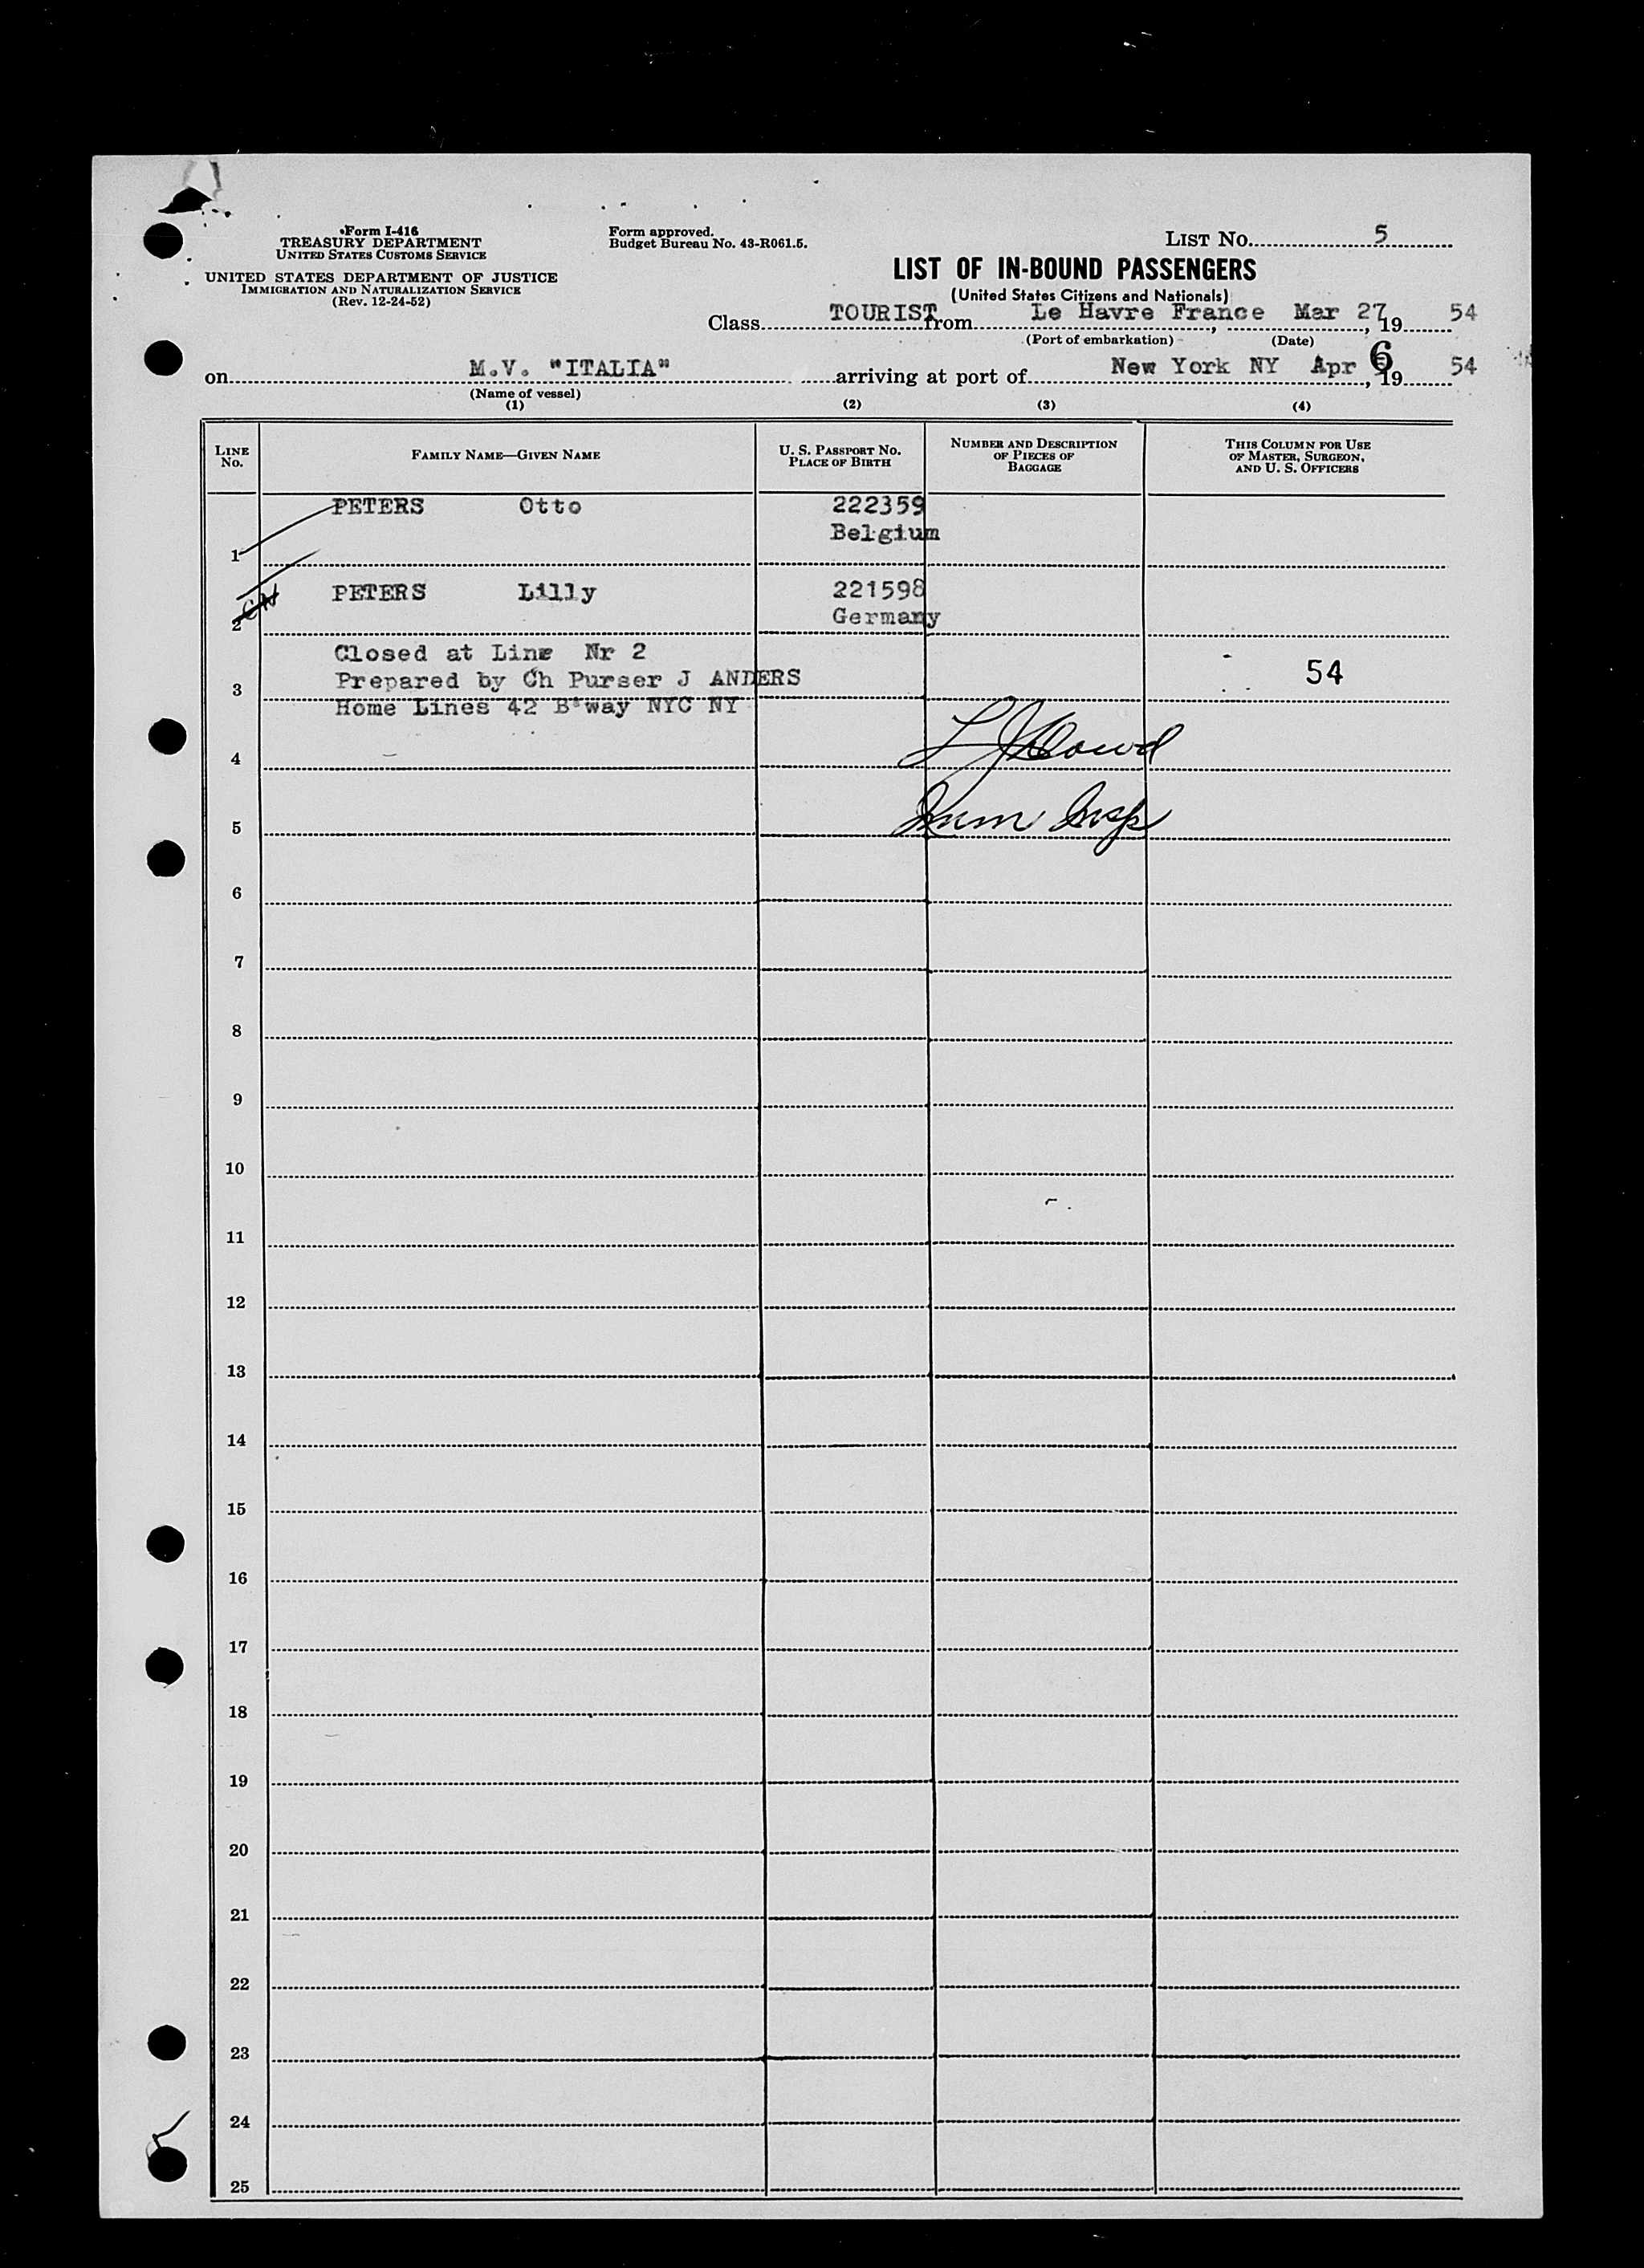 Form I-416
TREASURY DEPARTMENT
UNITED STATES CUSTOMS SERVICE
UNITED STATES DEPARTMENT OF JUSTICE
IMMIGRATION AND NATURALIZATION SERVICE
(Rev. 12-24-52)
Form approved.
Budget Bureau No. 43-R061.5.
LIST No. 5
LIST OF IN-BOUND PASSENGERS
(United States Citizens and Nationals)
Class TOURIST from Le Havre France, Mar 27, 19 54
(Port of embarkation) (Date)
on M.V. "ITALIA" arriving at port of New York NY Apr 6, 19 54
(Name of vessel)
(1) (2) (3) (4)
LINE No. FAMILY NAME—GIVEN NAME U. S. PASSPORT No. PLACE OF BIRTH NUMBER AND DESCRIPTION OF PIECES OF BAGGAGE THIS COLUMN FOR USE OF MASTER, SURGEON, AND U. S. OFFICERS
PETERS Otto 222359
1 Belgium
PETERS Lilly 221598
2 Germany
Closed at Line Nr 2
3 Prepared by Ch Purser J ANDERS 54
Home Lines 42 B'way NYC NY
4
5 Imm Insp
6
7
8
9
10
11
12
13
14
15
16
17
18
19
20
21
22
23
24
25